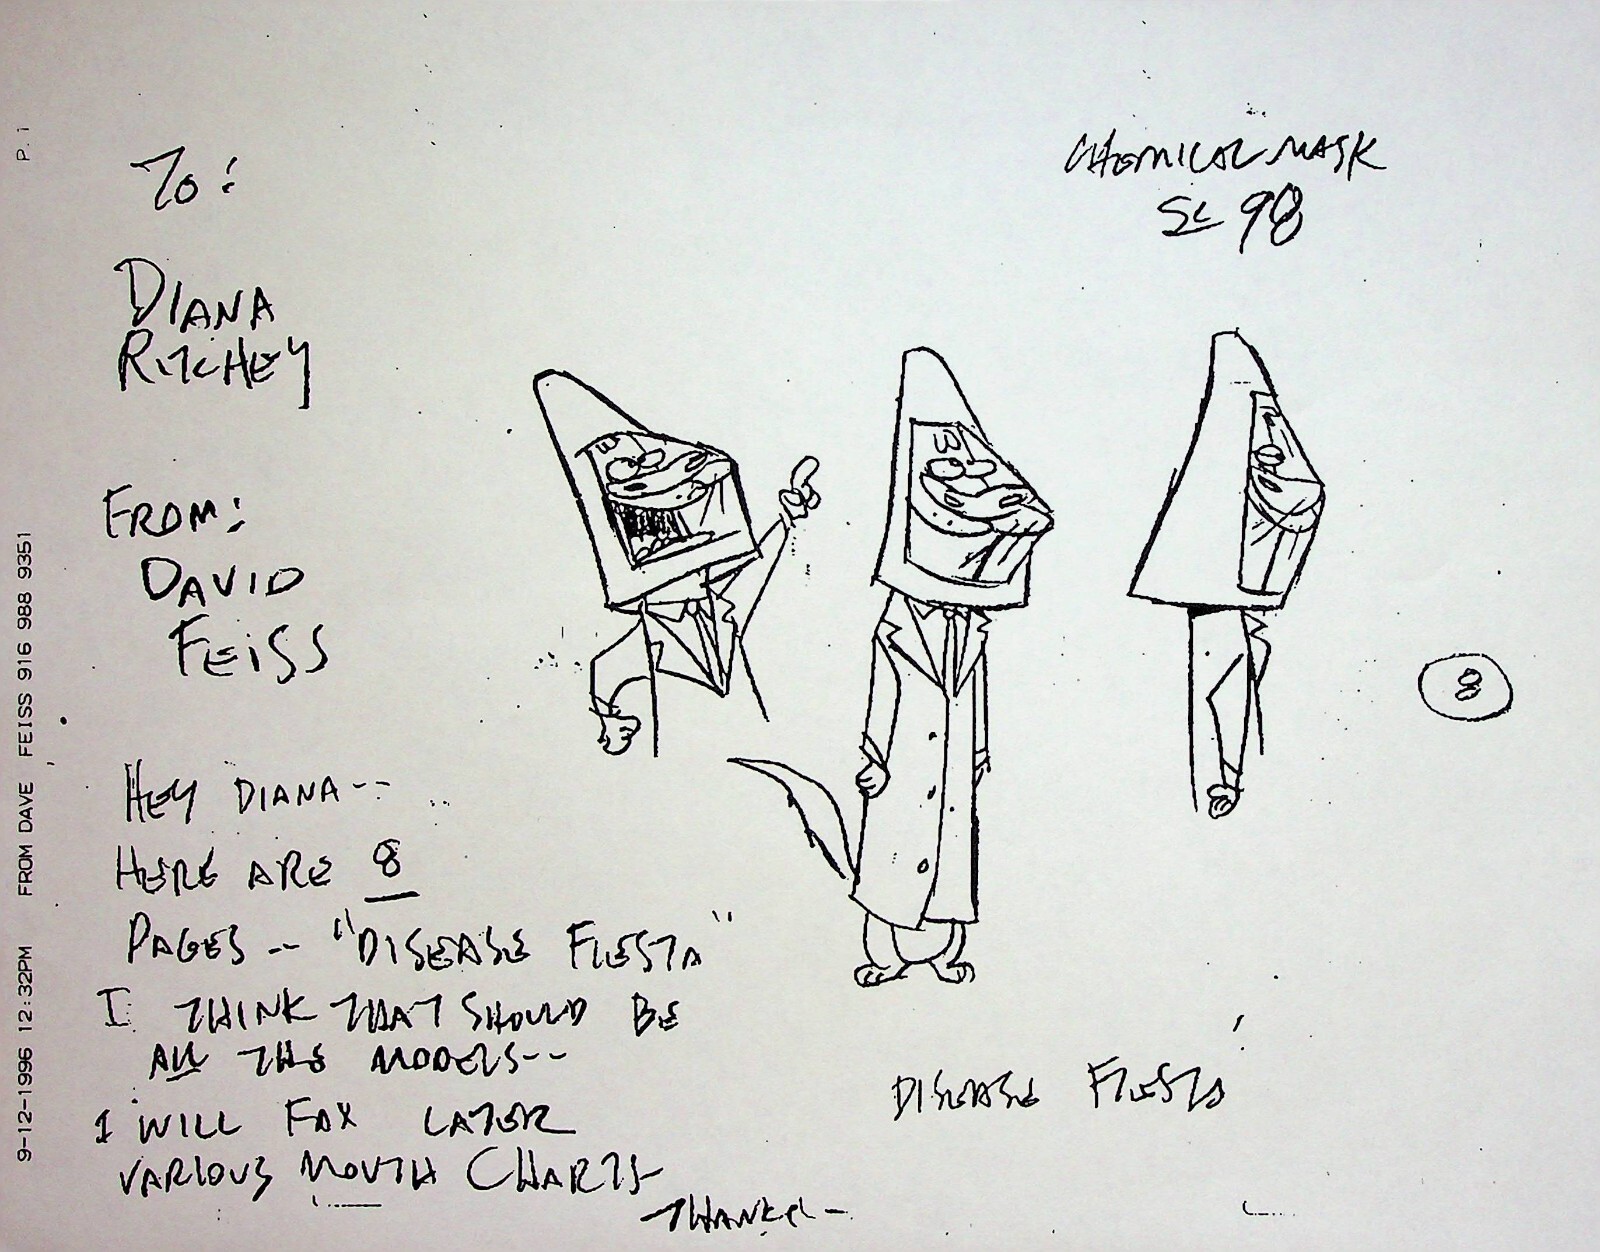 P. 1
9-12-1996 12:32PM FROM DAVE FEISS 916 988 9351
TO:
DIANA
RITCHEY
FROM:
DAVID
FEISS
HEY DIANA--
HERE ARE 8
PAGES -- "DISEASE FIESTA"
I THINK THAT SHOULD BE
ALL THE MODELS--
I WILL FAX LATER
VARIOUS MOUTH CHARTS-
THANKS-
CHEMICAL MASK
SC 98
8
DISEASE FIESTA